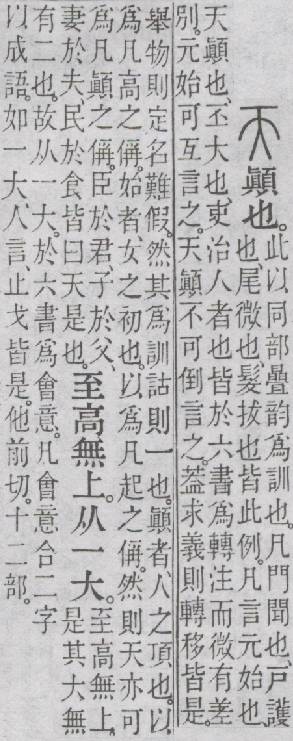 天 顚也。
此以同部疊韵爲訓也。凡門聞也、戶護
也、尾微也、髮拔也、皆此例。凡言元始也、
天顚也、丕大也、吏治人者也、皆於六書爲轉注而微有差
別。元始可互言之。天顚不可倒言之。葢求義則轉移皆是。
舉物則定名難假。然其爲訓詁則一也。顚者、人之頂也。以
爲凡高之偁。始者、女之初也。以爲凡起之偁。然則天亦可
爲凡顚之偁。臣於君、子於父、
妻於夫、民於食皆曰天是也。
至高無上。从一大。
至高無上。
是其大無
有二也。故从一大。於六書爲會意。凡會意合二字
以成語。如一大、人言、止戈皆是。他前切。十二部。